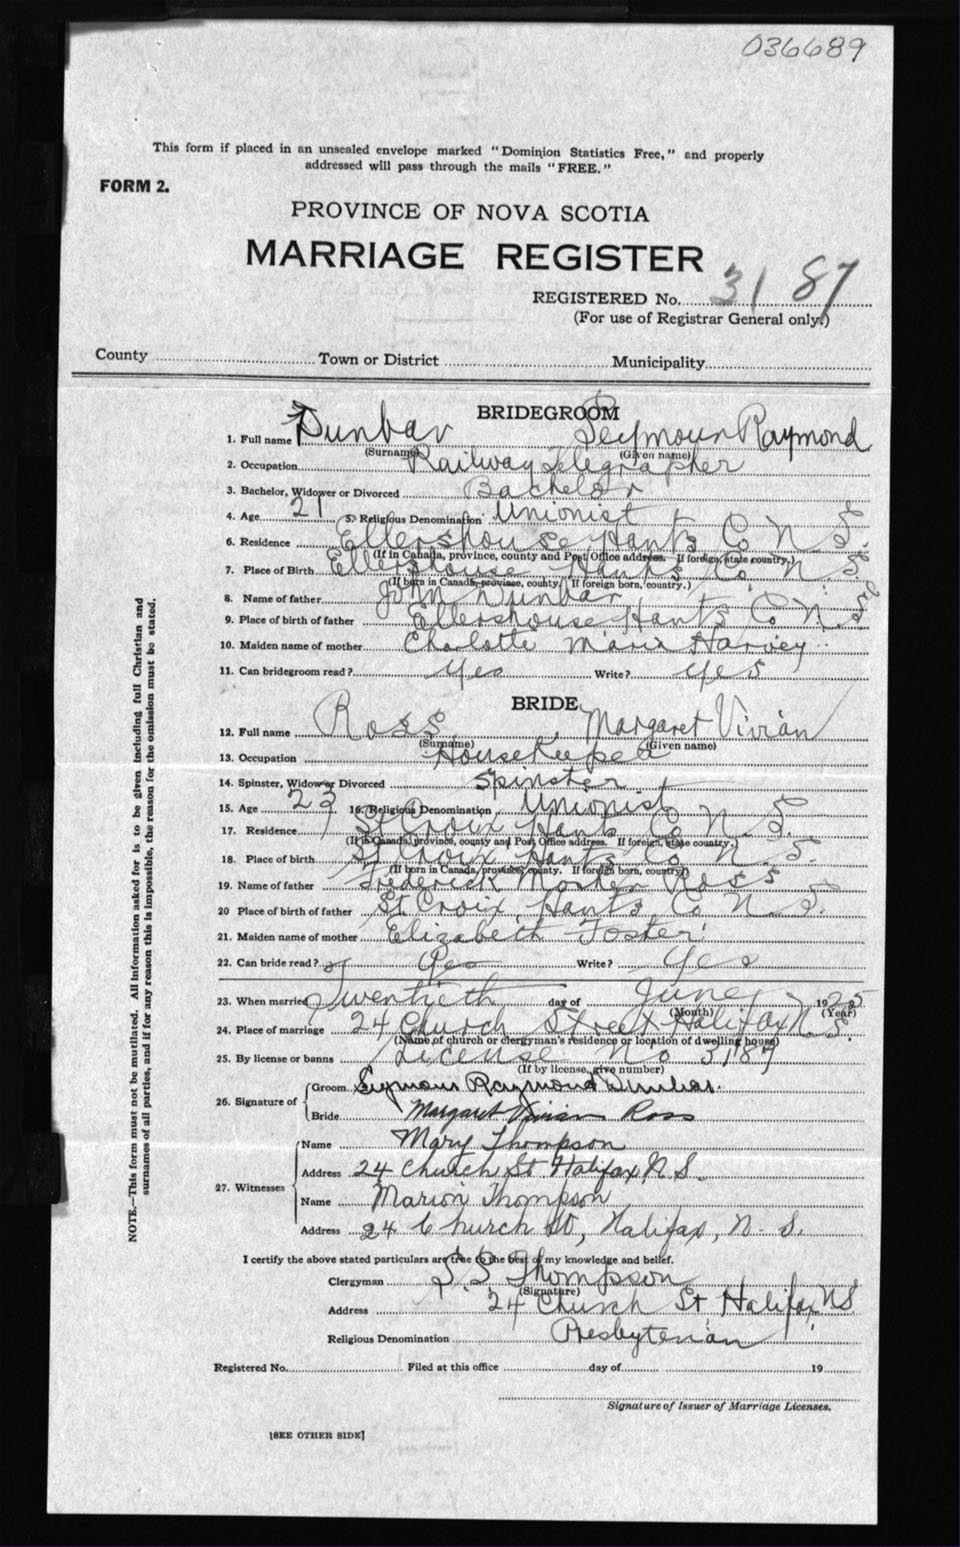 036689
This form if placed in an unsealed envelope marked "Dominion Statistics Free," and properly
addressed will pass through the mails "FREE."
FORM 2.
PROVINCE OF NOVA SCOTIA
MARRIAGE REGISTER
REGISTERED No. 3187
(For use of Registrar General only.)
County Town or District Municipality
BRIDEGROOM
1. Full name Dunbar Seymour Raymond
(Surname) (Given name)
2. Occupation Railway Telegrapher
3. Bachelor, Widower or Divorced Bachelor
4. Age 21 5. Religious Denomination Unionist
6. Residence Ellershouse Hants Co N S.
(If in Canada, province, county and Post Office address. If foreign, state country.)
7. Place of Birth Ellershouse Hants Co. N S
(If born in Canada, province, county. If foreign born, country.)
8. Name of father John Dunbar
9. Place of birth of father Ellershouse Hants Co N.S
10. Maiden name of mother Charlotte Maria Harvey
11. Can bridegroom read? Yes Write? Yes
BRIDE
12. Full name Ross Margaret Vivian
(Surname) (Given name)
13. Occupation Housekeeper
14. Spinster, Widow or Divorced Spinster
15. Age 23 16. Religious Denomination Unionist
17. Residence St Croix Hants Co N. S.
(If in Canada, province, county and Post Office address. If foreign, state country.)
18. Place of birth St Croix Hants Co N. S.
(If born in Canada, province, county. If foreign born, country)
19. Name of father Frederick Ross
20 Place of birth of father St Croix, Hants Co N S.
21. Maiden name of mother Elizabeth Foster
22. Can bride read? Yes Write? Yes
23. When married Twentieth day of June 1925
(Month) (Year)
24. Place of marriage 24 Church Street Halifax N. S.
(Name of church or clergyman's residence or location of dwelling house)
25. By license or banns License No 3187
(If by license, give number)
26. Signature of Groom Seymour Raymond Dunbar.
Bride Margaret Vivian Ross
27. Witnesses Name Mary Thompson
Address 24 Church St. Halifax N S.
Name Marion Thompson
Address 24 Church St, Halifax, N. S.
I certify the above stated particulars are true to the best of my knowledge and belief.
Clergyman Thompson
(Signature)
Address 24 Church St Halifax N S.
Religious Denomination Presbyterian
Registered No. Filed at this office day of 19
Signature of Issuer of Marriage Licenses.
[SEE OTHER SIDE]
NOTE.—This form must not be mutilated. All information asked for is to be given including full Christian and
surnames of all parties, and if for any reason this is impossible, the reason for the omission must be stated.